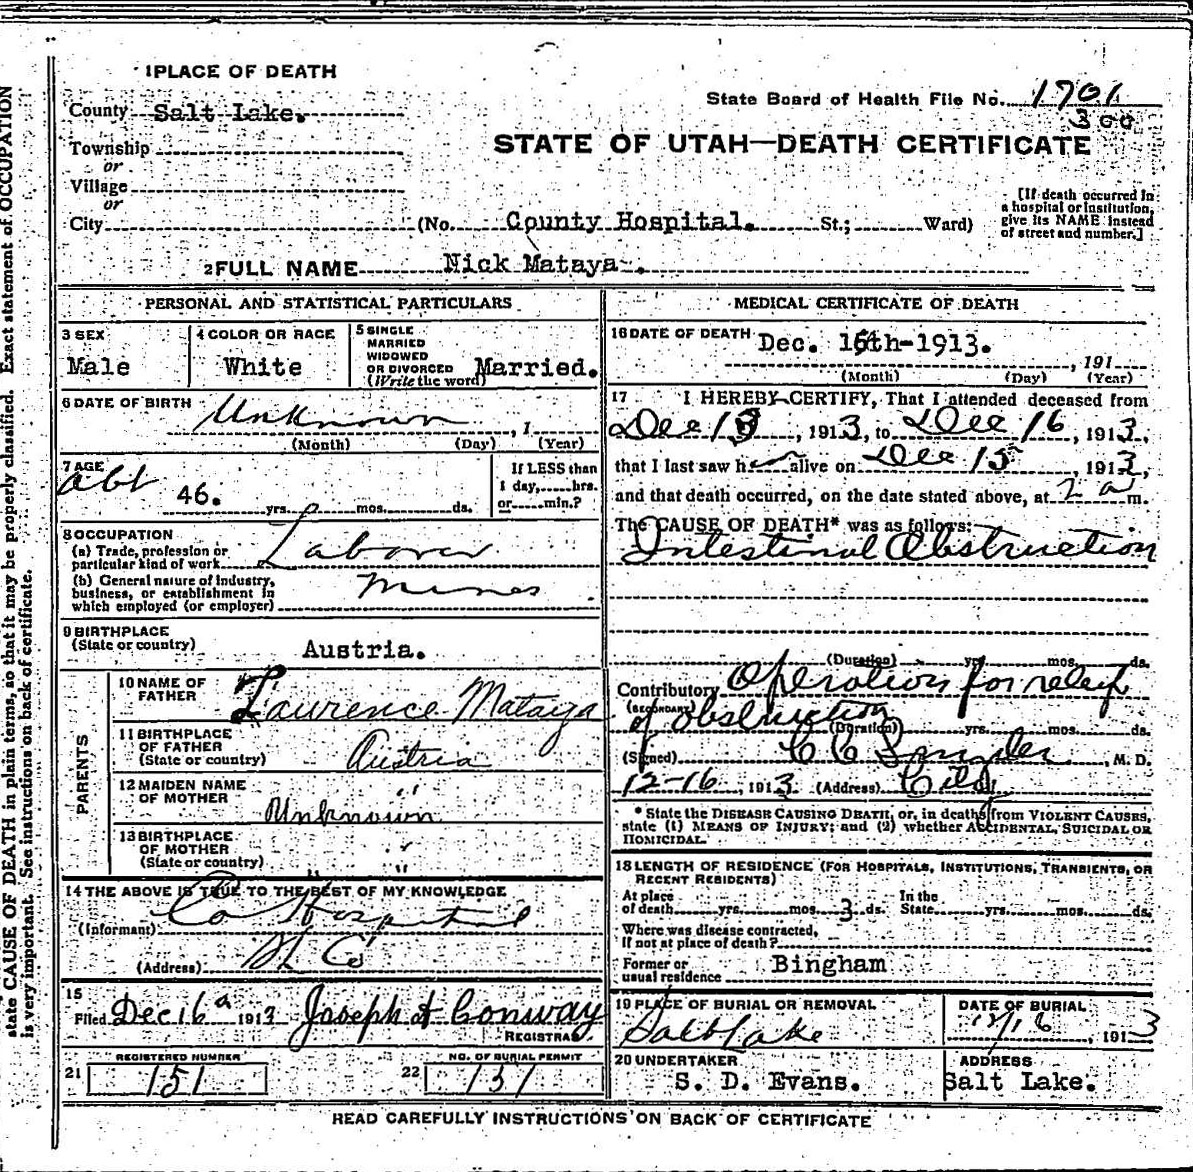 1 PLACE OF DEATH
County Salt Lake.
State Board of Health File No. 1701
300
STATE OF UTAH—DEATH CERTIFICATE
Township
or
Village
or
City (No. County Hospital. St.; Ward)
[If death occurred in a hospital or institution, give its NAME instead of street and number.]
2 FULL NAME Nick Mataya.
PERSONAL AND STATISTICAL PARTICULARS
3 SEX
Male
4 COLOR OR RACE
White
5 SINGLE
MARRIED
WIDOWED
OR DIVORCED
(Write the word)
Married.
6 DATE OF BIRTH
Unknown , 1
(Month) (Day) (Year)
7 AGE
abt 46. yrs. mos. ds.
If LESS than
1 day, hrs.
or min.?
8 OCCUPATION
(a) Trade, profession or
particular kind of work Laborer
(b) General nature of industry,
business, or establishment in
which employed (or employer) mines
9 BIRTHPLACE
(State or country)
Austria.
PARENTS
10 NAME OF
FATHER Laurence Mataya
11 BIRTHPLACE
OF FATHER
(State or country) Austria
12 MAIDEN NAME
OF MOTHER Unknown
13 BIRTHPLACE
OF MOTHER
(State or country) "
14 THE ABOVE IS TRUE TO THE BEST OF MY KNOWLEDGE
(Informant) Co Hospital
(Address) S L Co
15
Filed Dec 16 1913 Joseph H Conway
REGISTRAR.
REGISTERED NUMBER
21 151
NO. OF BURIAL PERMIT
22 151
MEDICAL CERTIFICATE OF DEATH
16 DATE OF DEATH Dec. 16th-1913.
, 191
(Month) (Day) (Year)
17 I HEREBY CERTIFY, That I attended deceased from
Dec 13, 1913, to Dec 16, 1913,
that I last saw h alive on Dec 15, 1913,
and that death occurred, on the date stated above, at 2 a m.
The CAUSE OF DEATH* was as follows:
Intestinal Obstruction
(Duration) yrs. mos. ds.
Contributory Operation for relief
(SECONDARY) of obstruction
(Duration) yrs. mos. ds.
(Signed) C C , M. D.
12-16, 1913 (Address) City
* State the DISEASE CAUSING DEATH, or, in deaths from VIOLENT CAUSES,
state (1) MEANS OF INJURY; and (2) whether ACCIDENTAL, SUICIDAL OR
HOMICIDAL.
18 LENGTH OF RESIDENCE (FOR HOSPITALS, INSTITUTIONS, TRANSIENTS, OR
RECENT RESIDENTS)
At place
of death yrs. mos. 3 ds.
In the
State yrs. mos. ds.
Where was disease contracted,
If not at place of death?
Former or
usual residence Bingham
19 PLACE OF BURIAL OR REMOVAL
Salt Lake
DATE OF BURIAL
12/16, 1913
20 UNDERTAKER
S. D. Evans.
ADDRESS
Salt Lake.
READ CAREFULLY INSTRUCTIONS ON BACK OF CERTIFICATE
state CAUSE OF DEATH in plain terms, so that it may be properly classified. Exact statement of OCCUPATION
is very important. See instructions on back of certificate.